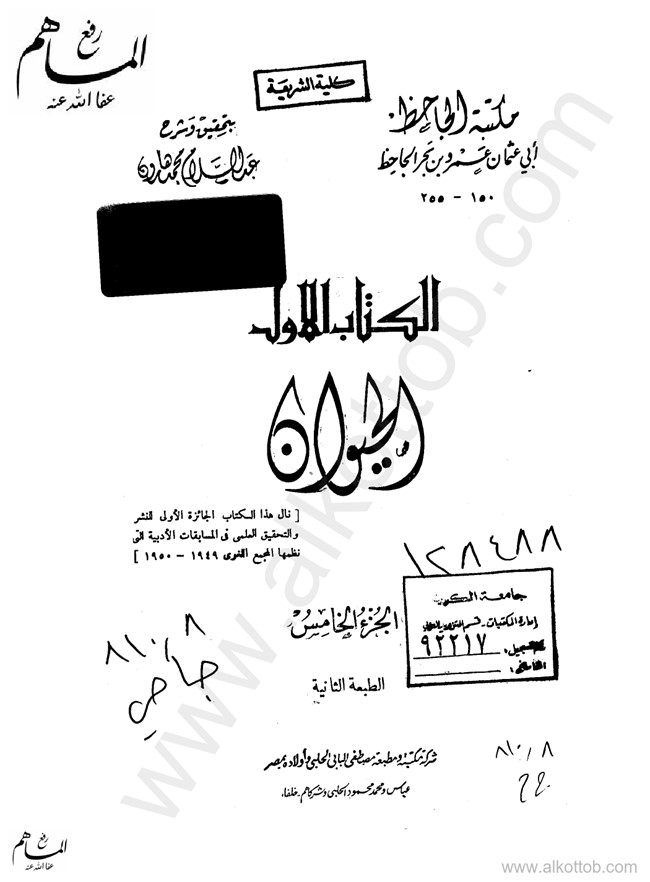 رفع
المساهم
عفا الله عنه
كلية الشريعة
مكتبة الجاحظ
أبي عثمان عمرو بن بحر الجاحظ
١٥٠ - ٢٥٥
بتحقيق وشرح
عبد السلام محمد هارون
الكتاب الأول
الحيوان
[ نال هذا الكتاب الجائزة الأولى للنشر
والتحقيق العلمى فى المسابقات الأدبية التى
نظمها المجمع اللغوى ١٩٤٩ - ١٩٥٠ ]
١٢٨٤٨٨
جامعة الكويت
إدارة المكتبات - قسم
التسجيل: ٩٢٢١٧
التاريخ:
الجزء الخامس
الطبعة الثانية
٨١٠,٨
جا ح
شركة مكتبة ومطبعة مصطفى البابى الحلبى وأولاده بمصر
عباس ومحمد محمود الحلبى وشركاهم - خلفاء
٨١٠,٨
ج ح
رفع
المساهم
عفا الله عنه
www.alkottob.com
www.alkottob.com